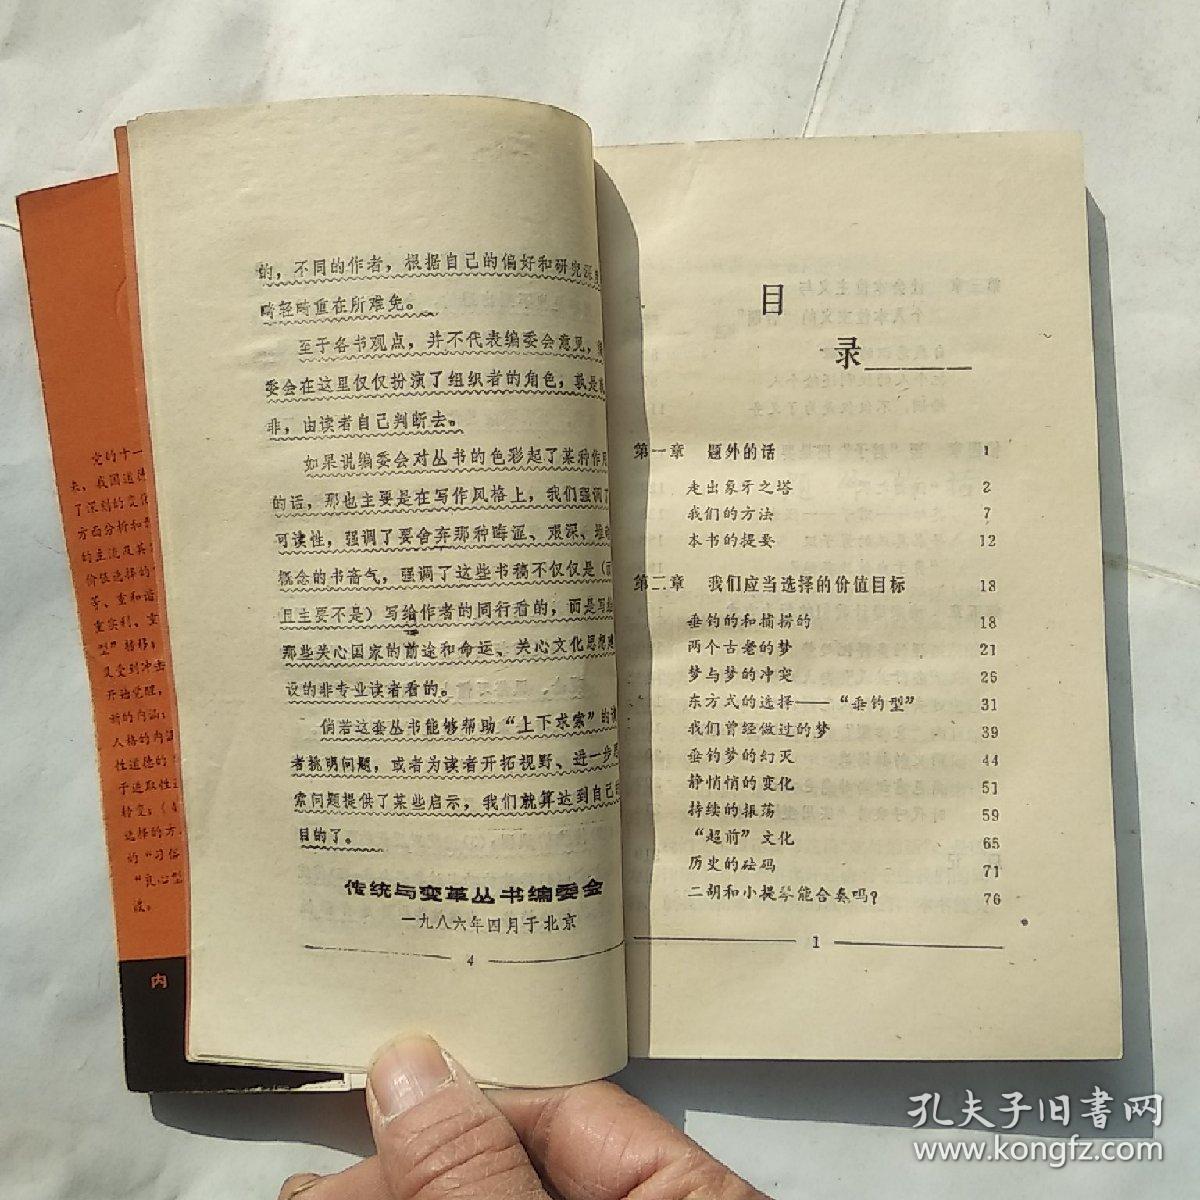 的，不同的作者，根据自己的偏好和研究深
畸轻畸重在所难免。
至于各书观点，并不代表编委会意见，
委会在这里仅仅扮演了组织者的角色，孰是
非，由读者自己判断去。
如果说编委会对丛书的色彩起了某种作用
的话，那也主要是在写作风格上，我们强调了
可读性，强调了要舍弃那种晦涩、艰深、堆
概念的书斋气，强调了这些书稿不仅仅是（而
且主要不是）写给作者的同行看的，而是写给
那些关心国家的前途和命运、关心文化思想建
设的非专业读者看的。
倘若这套丛书能够帮助“上下求索”的读
者挑明问题，或者为读者开拓视野、进一步思
索问题提供了某些启示，我们就算达到自己的
目的了。
传统与变革丛书编委会
一九八六年四月于北京
4
目
录
第一章 题外的话 1
走出象牙之塔 2
我们的方法 7
本书的提要 12
第二章 我们应当选择的价值目标 18
垂钓的和捕捞的 18
两个古老的梦 21
梦与梦的冲突 26
东方式的选择——“垂钓型” 31
我们曾经做过的梦 39
垂钓梦的幻灭 44
静悄悄的变化 51
持续的振荡 59
“超前”文化 65
历史的砝码 71
二胡和小提琴能合奏吗？ 76
1
党的十一
来，我国道德
了深刻的变化
方面分析和
的主流及其
价值选择的
等、重和谐
重实利、重
型”转移；
又受到冲击
开始觉醒，
新的内涵；
人格的内涵
性道德的
于进取性
转变；（4
选择的方
的“习俗
“良心型
波。
内
孔夫子旧書网
www.kongfz.com